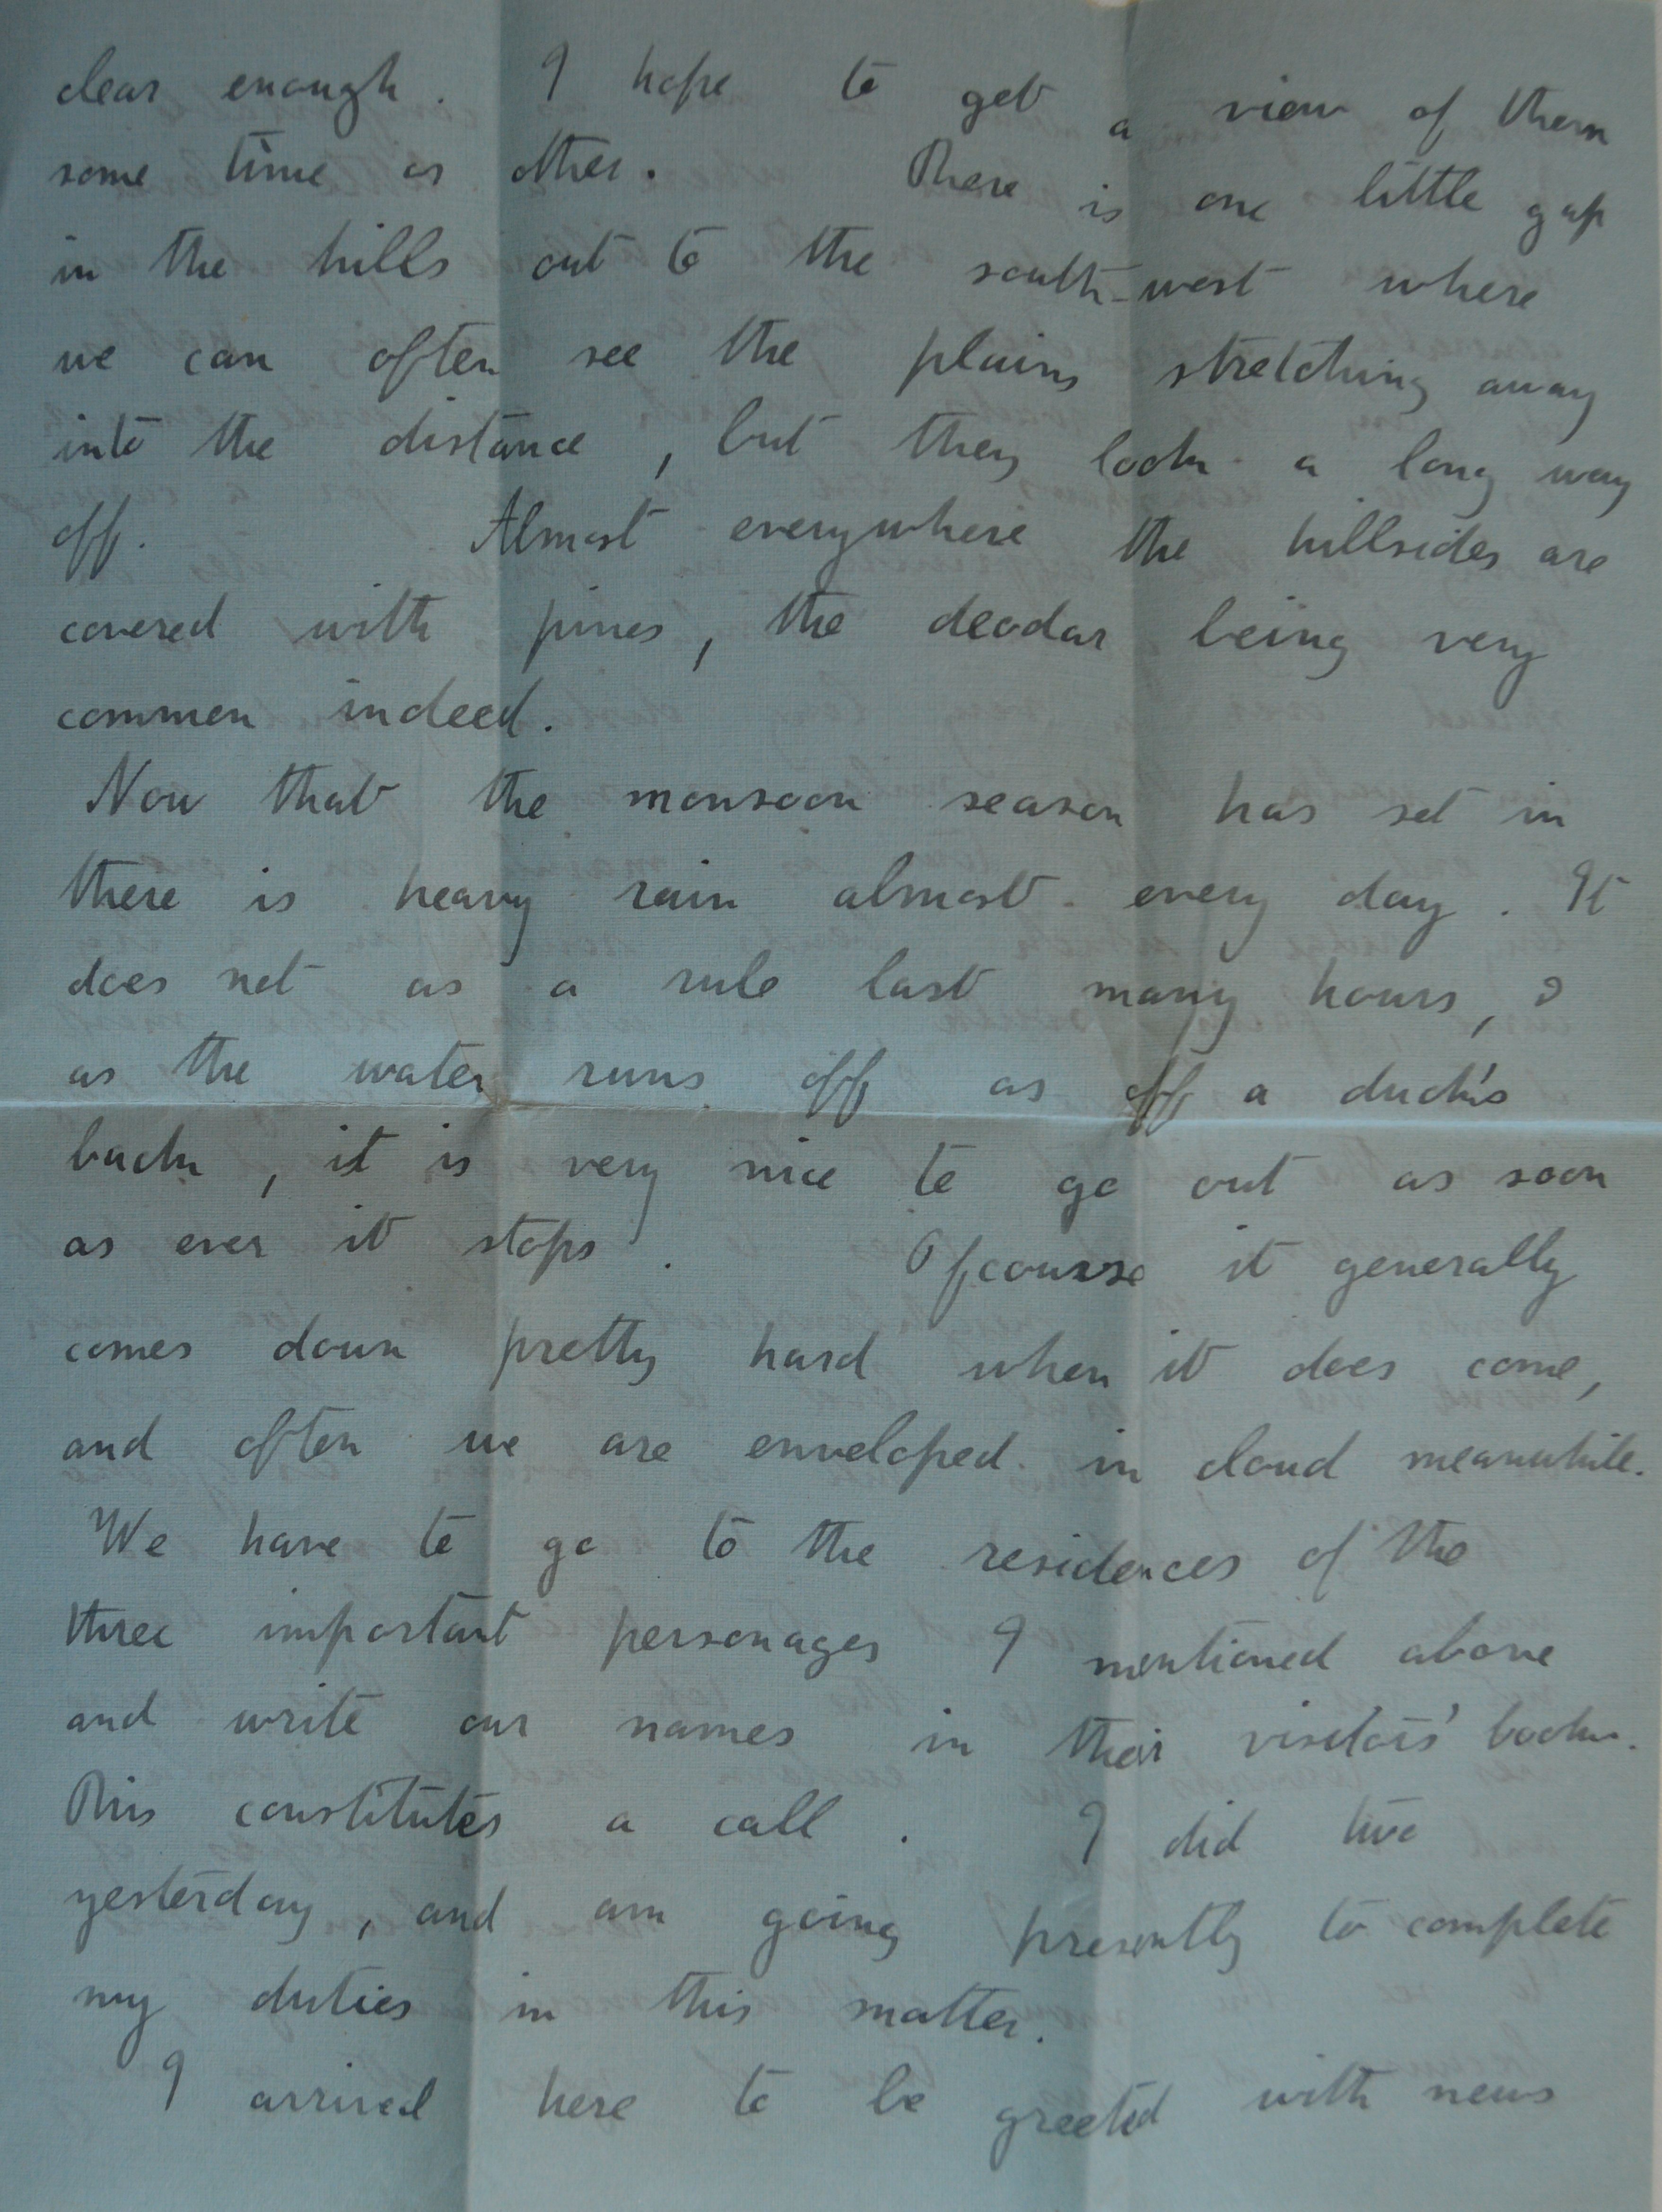 clear enough. I hope to get a view of them
some time or other. There is one little gap
in the hills out to the south-west where
we can often see the plains stretching away
into the distance, but they look a long way
off. Almost everywhere the hillsides are
covered with pines, the deodar being very
common indeed.
Now that the monsoon season has set in
there is heavy rain almost every day. It
does not as a rule last many hours, &
as the water runs off as off a duck's
back, it is very nice to go out as soon
as ever it stops. Of course it generally
comes down pretty hard when it does come,
and often we are enveloped in cloud meanwhile.
We have to go to the residences of the
three important personages I mentioned above
and write our names in their visitors' books.
This constitutes a call. I did two
yesterday, and am going presently to complete
my duties in this matter.
I arrived here to be greeted with news